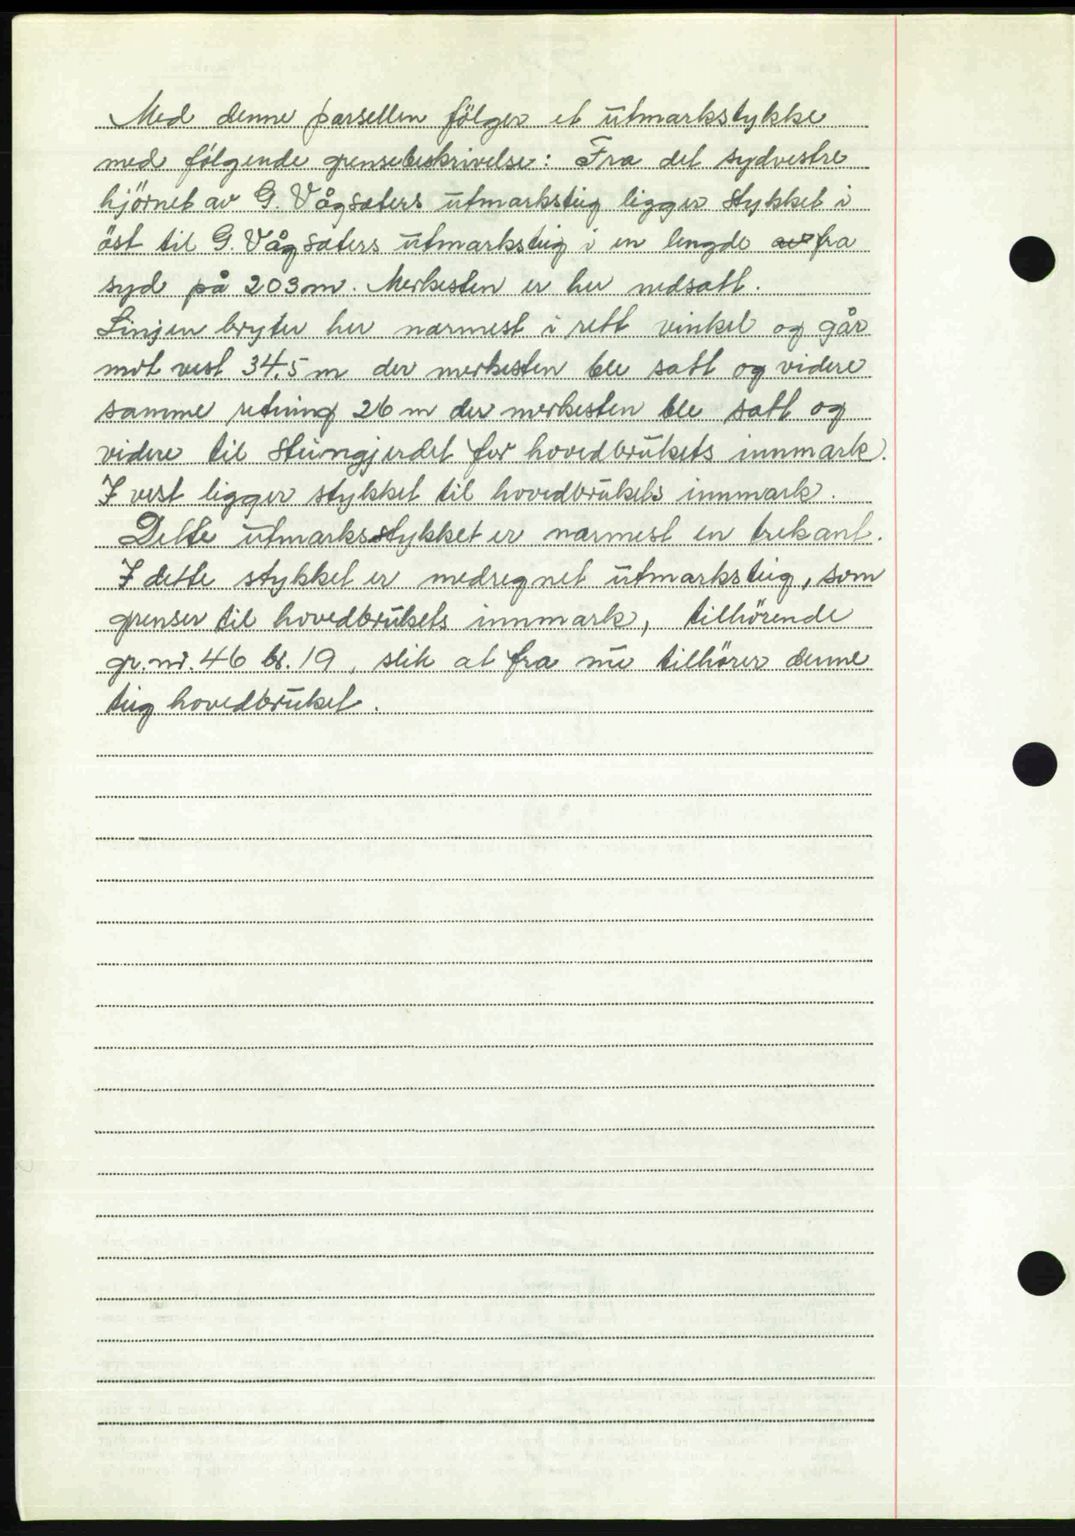 Med denne parsellen følger et utmarkstykke
med følgende grensebeskrivelse: Fra det sydvestre
hjørnet av G. Vågsæters utmarksteig ligger stykket i
øst til G. Vågsæters utmarksteig i en lengde fra
syd på 203 m. Merkesten er her nedsatt.
Linjen bryter her nærmest i rett vinkel og går
mot vest 34,5 m der merkesten ble satt og videre
samme retning 26 m der merkesten ble satt og
videre til steingjerdet for hovedbrukets innmark.
I vest ligger stykket til hovedbrukets innmark.
Dette utmarksstykket er nærmest en trekant.
I dette stykket er medregnet utmarksteig, som
grenser til hovedbrukets innmark, tilhørende
gr. nr. 46 b. 19, slik at fra nu tilhører denne
teig hovedbruket.